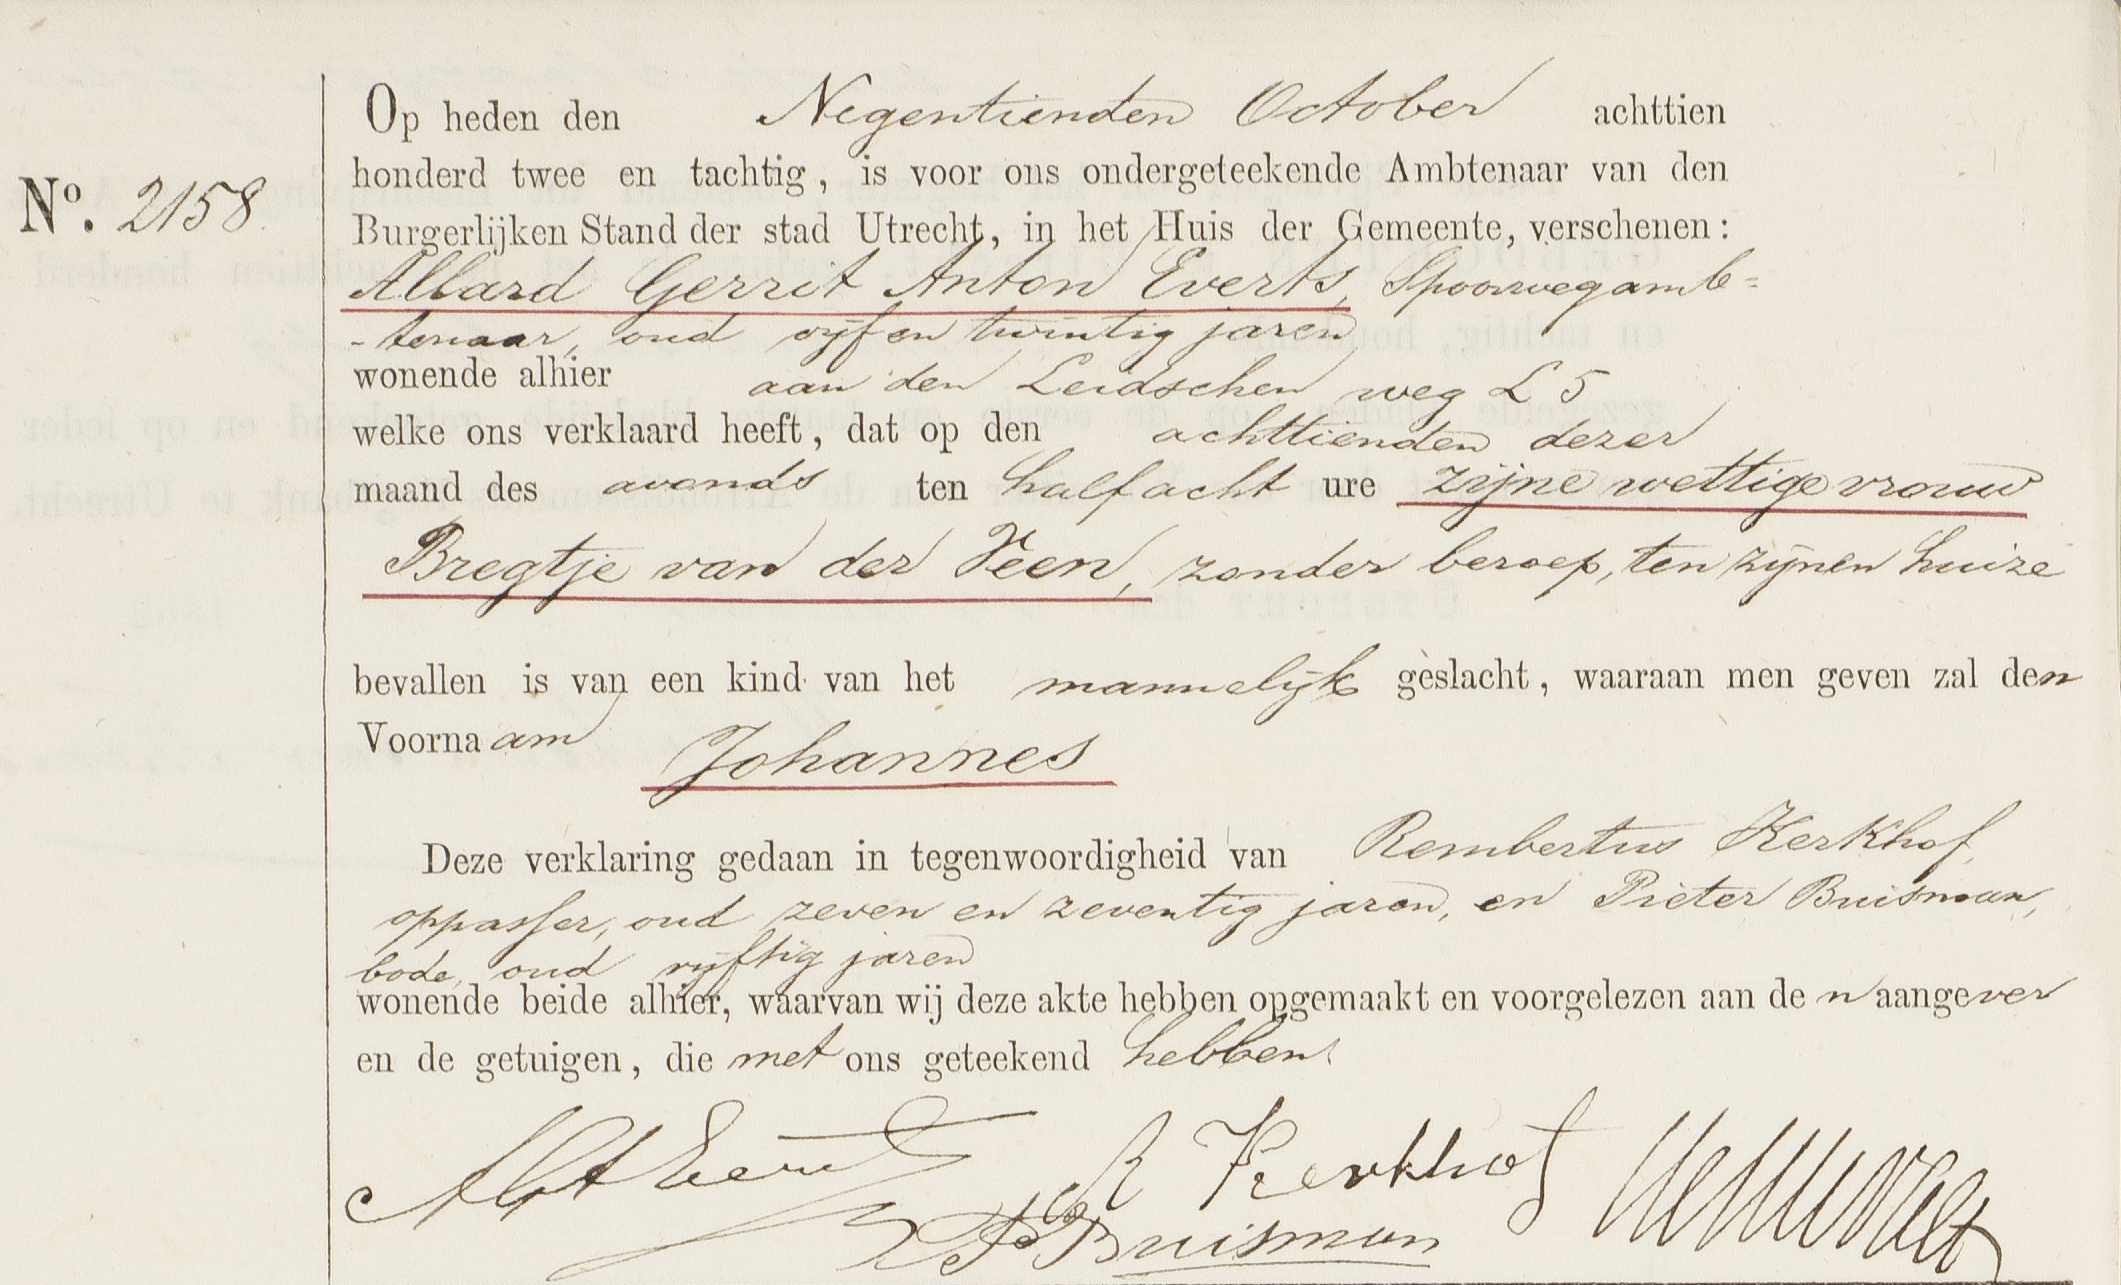 Op heden den Negentienden October achttien
No. 2158
honderd twee en tachtig, is voor ons ondergeteekende Ambtenaar van den
Burgerlijken Stand der stad Utrecht, in het Huis der Gemeente, verschenen:
Allard Gerrit Anton Everts, Spoorwegamb=
-tenaar, oud vijf en twintig jaren
wonende alhier aan den Leidschen weg L 5
welke ons verklaard heeft, dat op den achttienden dezer
maand des avonds ten half acht ure zijne wettige vrouw
Bregtje van der Veen, zonder beroep, ten zijnen huize
bevallen is van een kind van het mannelijk geslacht, waaraan men geven zal den
Voornaam Johannes
Deze verklaring gedaan in tegenwoordigheid van Rembertus Kerkhof,
oppasser, oud zeven en zeventig jaren, en Pieter Buisman,
bode, oud vijftig jaren
wonende beide alhier, waarvan wij deze akte hebben opgemaakt en voorgelezen aan den aangever
en de getuigen, die met ons geteekend hebben.
AGA Everts R Kerkhof
P Buisman